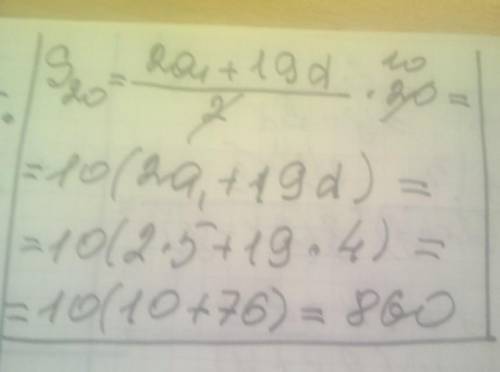 S₂₀ = (2a₁ + 19d)/2 · 20 = 10
= 10(2a₁ + 19d) =
= 10(2·5 + 19·4) =
= 10(10 + 76) = 860